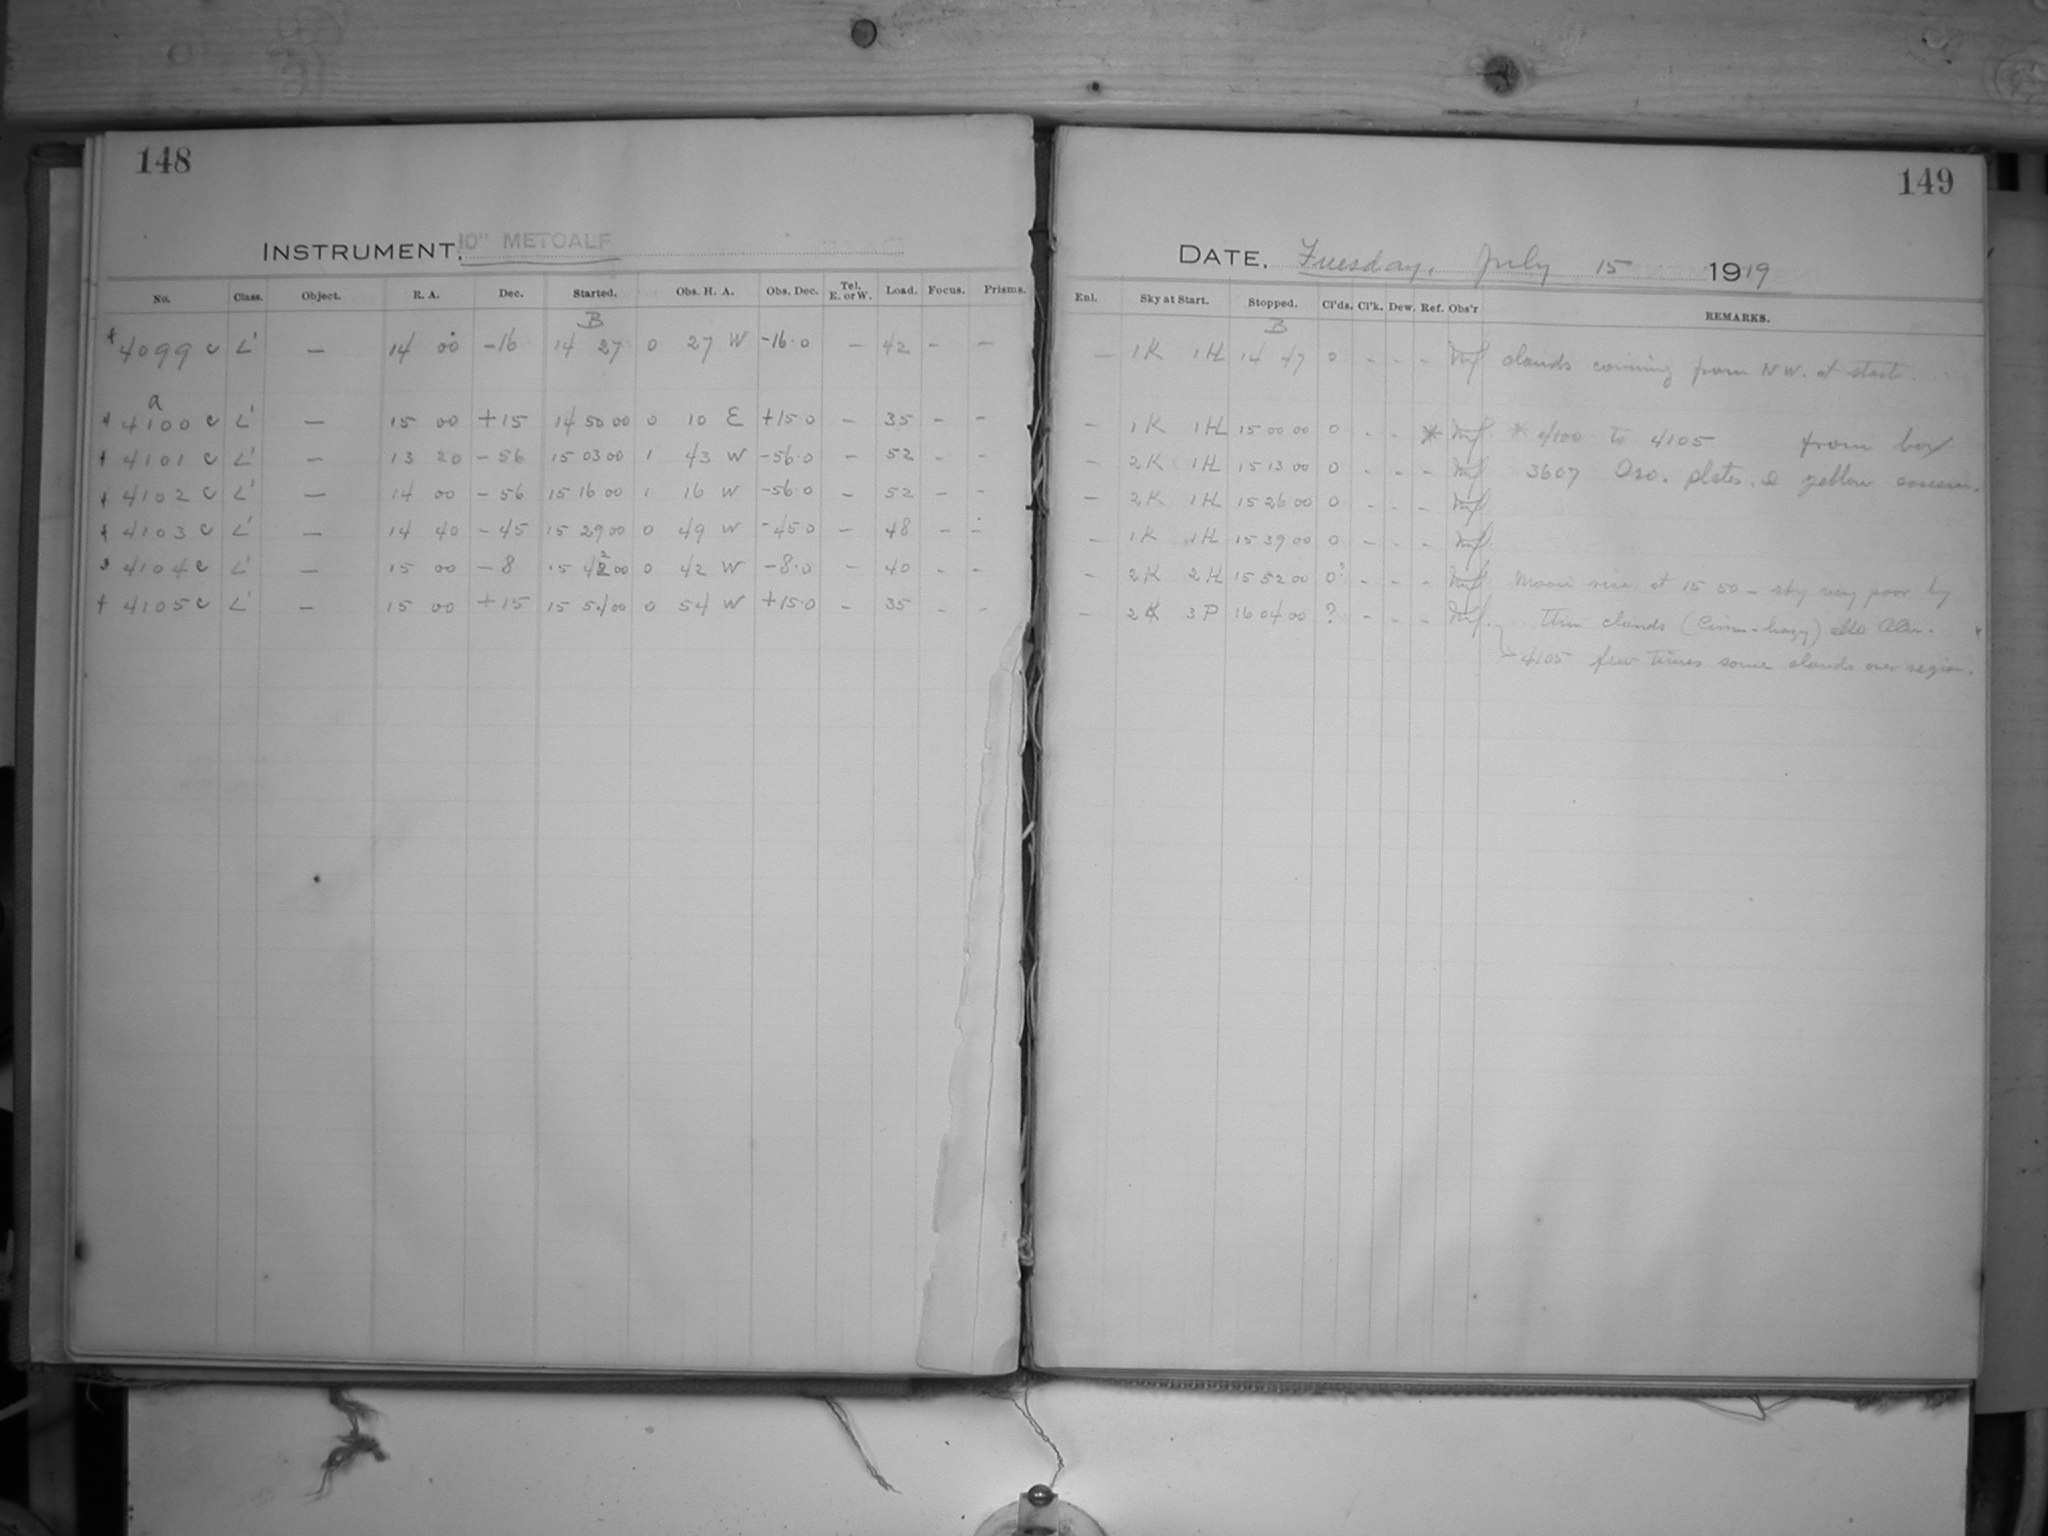 148
INSTRUMENT. 10" METCALF
No. Class. Object. R. A. Dec. Started. Obs. H. A. Obs. Dec. Tel. E. or W. Load. Focus. Prisms.
B
4099 c L' — 14 00 -16 14 27 0 27 W -16.0 — 42 - —
a
4100 c L' — 15 00 +15 14 50 00 0 10 E +15.0 — 35 - -
4101 c L' — 13 20 -56 15 03 00 1 43 W -56.0 — 52 - -
4102 c L' — 14 00 -56 15 16 00 1 16 W -56.0 — 52 - -
4103 c L' — 14 40 -45 15 29 00 0 49 W -45.0 — 48 - -
4104 c L' — 15 00 -8 15 42 00 0 42 W -8.0 — 40 - -
4105 c L' — 15 00 +15 15 54 00 0 54 W +15.0 — 35 - -
149
DATE. Tuesday, July 15 1919
Enl. Sky at Start. Stopped. Cl'ds. Cl'k. Dew. Ref. Obs'r REMARKS.
B
— 1K 1H 14 47 0 - - - clouds coming from NW. at start.
- 1K 1H 15 00 00 0 - - * * 4100 to 4105 from box
- 2K 1H 15 13 00 0 - - - 3607 Iso. plates. & yellow screen.
- 2K 1H 15 26 00 0 - - -
- 1K 1H 15 39 00 0 - - -
- 2K 2H 15 52 00 0? - - - Moon rise at 15 50 - sky very poor by
- 2K 3P 16 04 00 ? - - - thin clouds (Cirrus-hazy)
4105 few times some clouds over region.